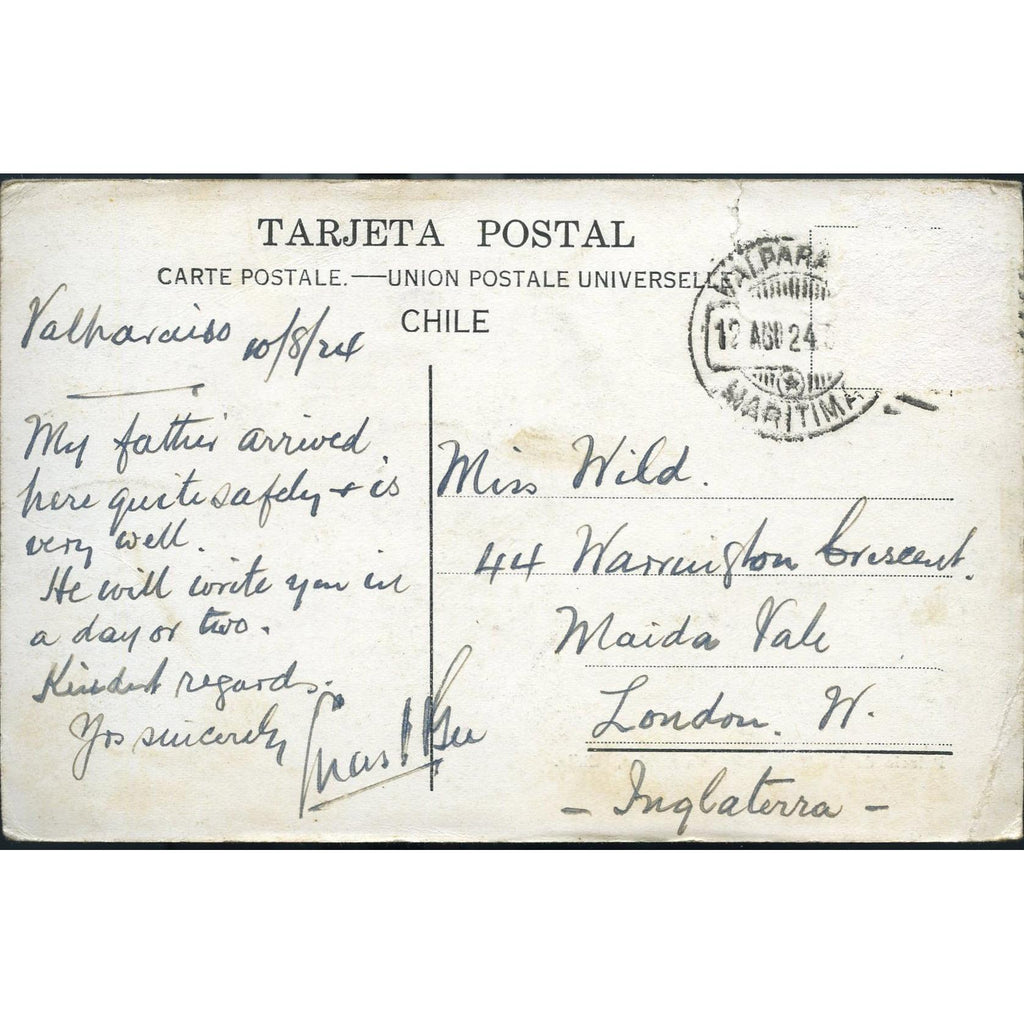 TARJETA POSTAL
CARTE POSTALE.—UNION POSTALE UNIVERSELLE
CHILE
VALPARA
12 AGO 24
MARITIMA
Valparaiso 10/8/24
My father arrived
here quite safely + is
very well.
He will write you in
a day or two.
Kindest regards.
Yrs sincerely
Miss Wild.
44 Warrington Crescent.
Maida Vale
London. W.
- Inglaterra -